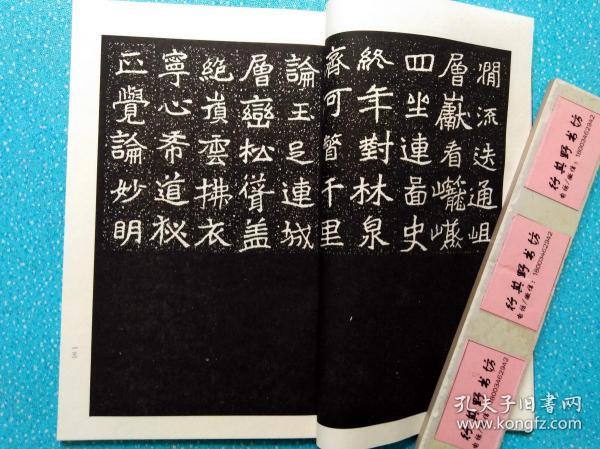 澗流迭通岨
層巘看巃
四坐連啚史
終年對林泉
齊可瞥千里
論玉已連城
層巒松聳蓋
絶嶺雲拂衣
寧心希道秘
正覺論妙明
行其野书坊
电话/微信：18003462942
行其野书坊
电话/微信：18003462942
行其野书坊
电话/微信：18003462942
孔夫子旧书网
www.kongfz.com